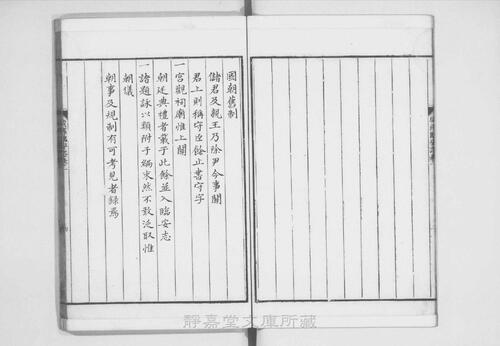 國朝舊制
儲君及親王乃除尹今事關
君上則稱守臣餘止書守字
一宮觀祠廟惟上關
朝廷典禮者載于此餘並入臨安志
一諸題詠以類附于編末然不敢泛取惟
朝儀
朝事及規制有可考見者録焉
靜嘉堂文庫所藏